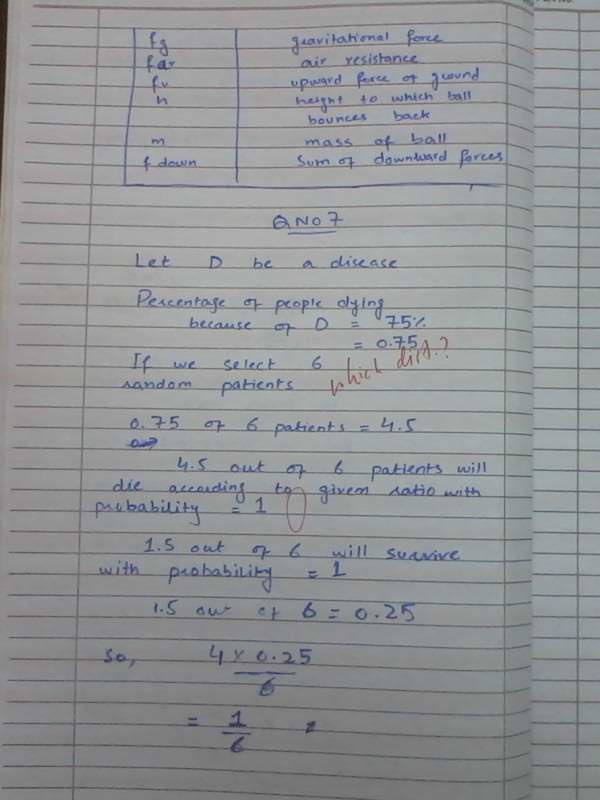 fg gravitational force
far air resistance
fu upward force of ground
h height to which ball
bounces back
m mass of ball
f down Sum of downward forces
Q NO 7
Let D be a disease
Percentage of people dying
because of D = 75%
= 0.75
If we select 6
random patients
which dist.?
0.75 of 6 patients = 4.5
4.5 out of 6 patients will
die according to given ratio with
probability = 1
1.5 out of 6 will survive
with probability = 1
1.5 out of 6 = 0.25
So, 4 x 0.25
6
= 1
6